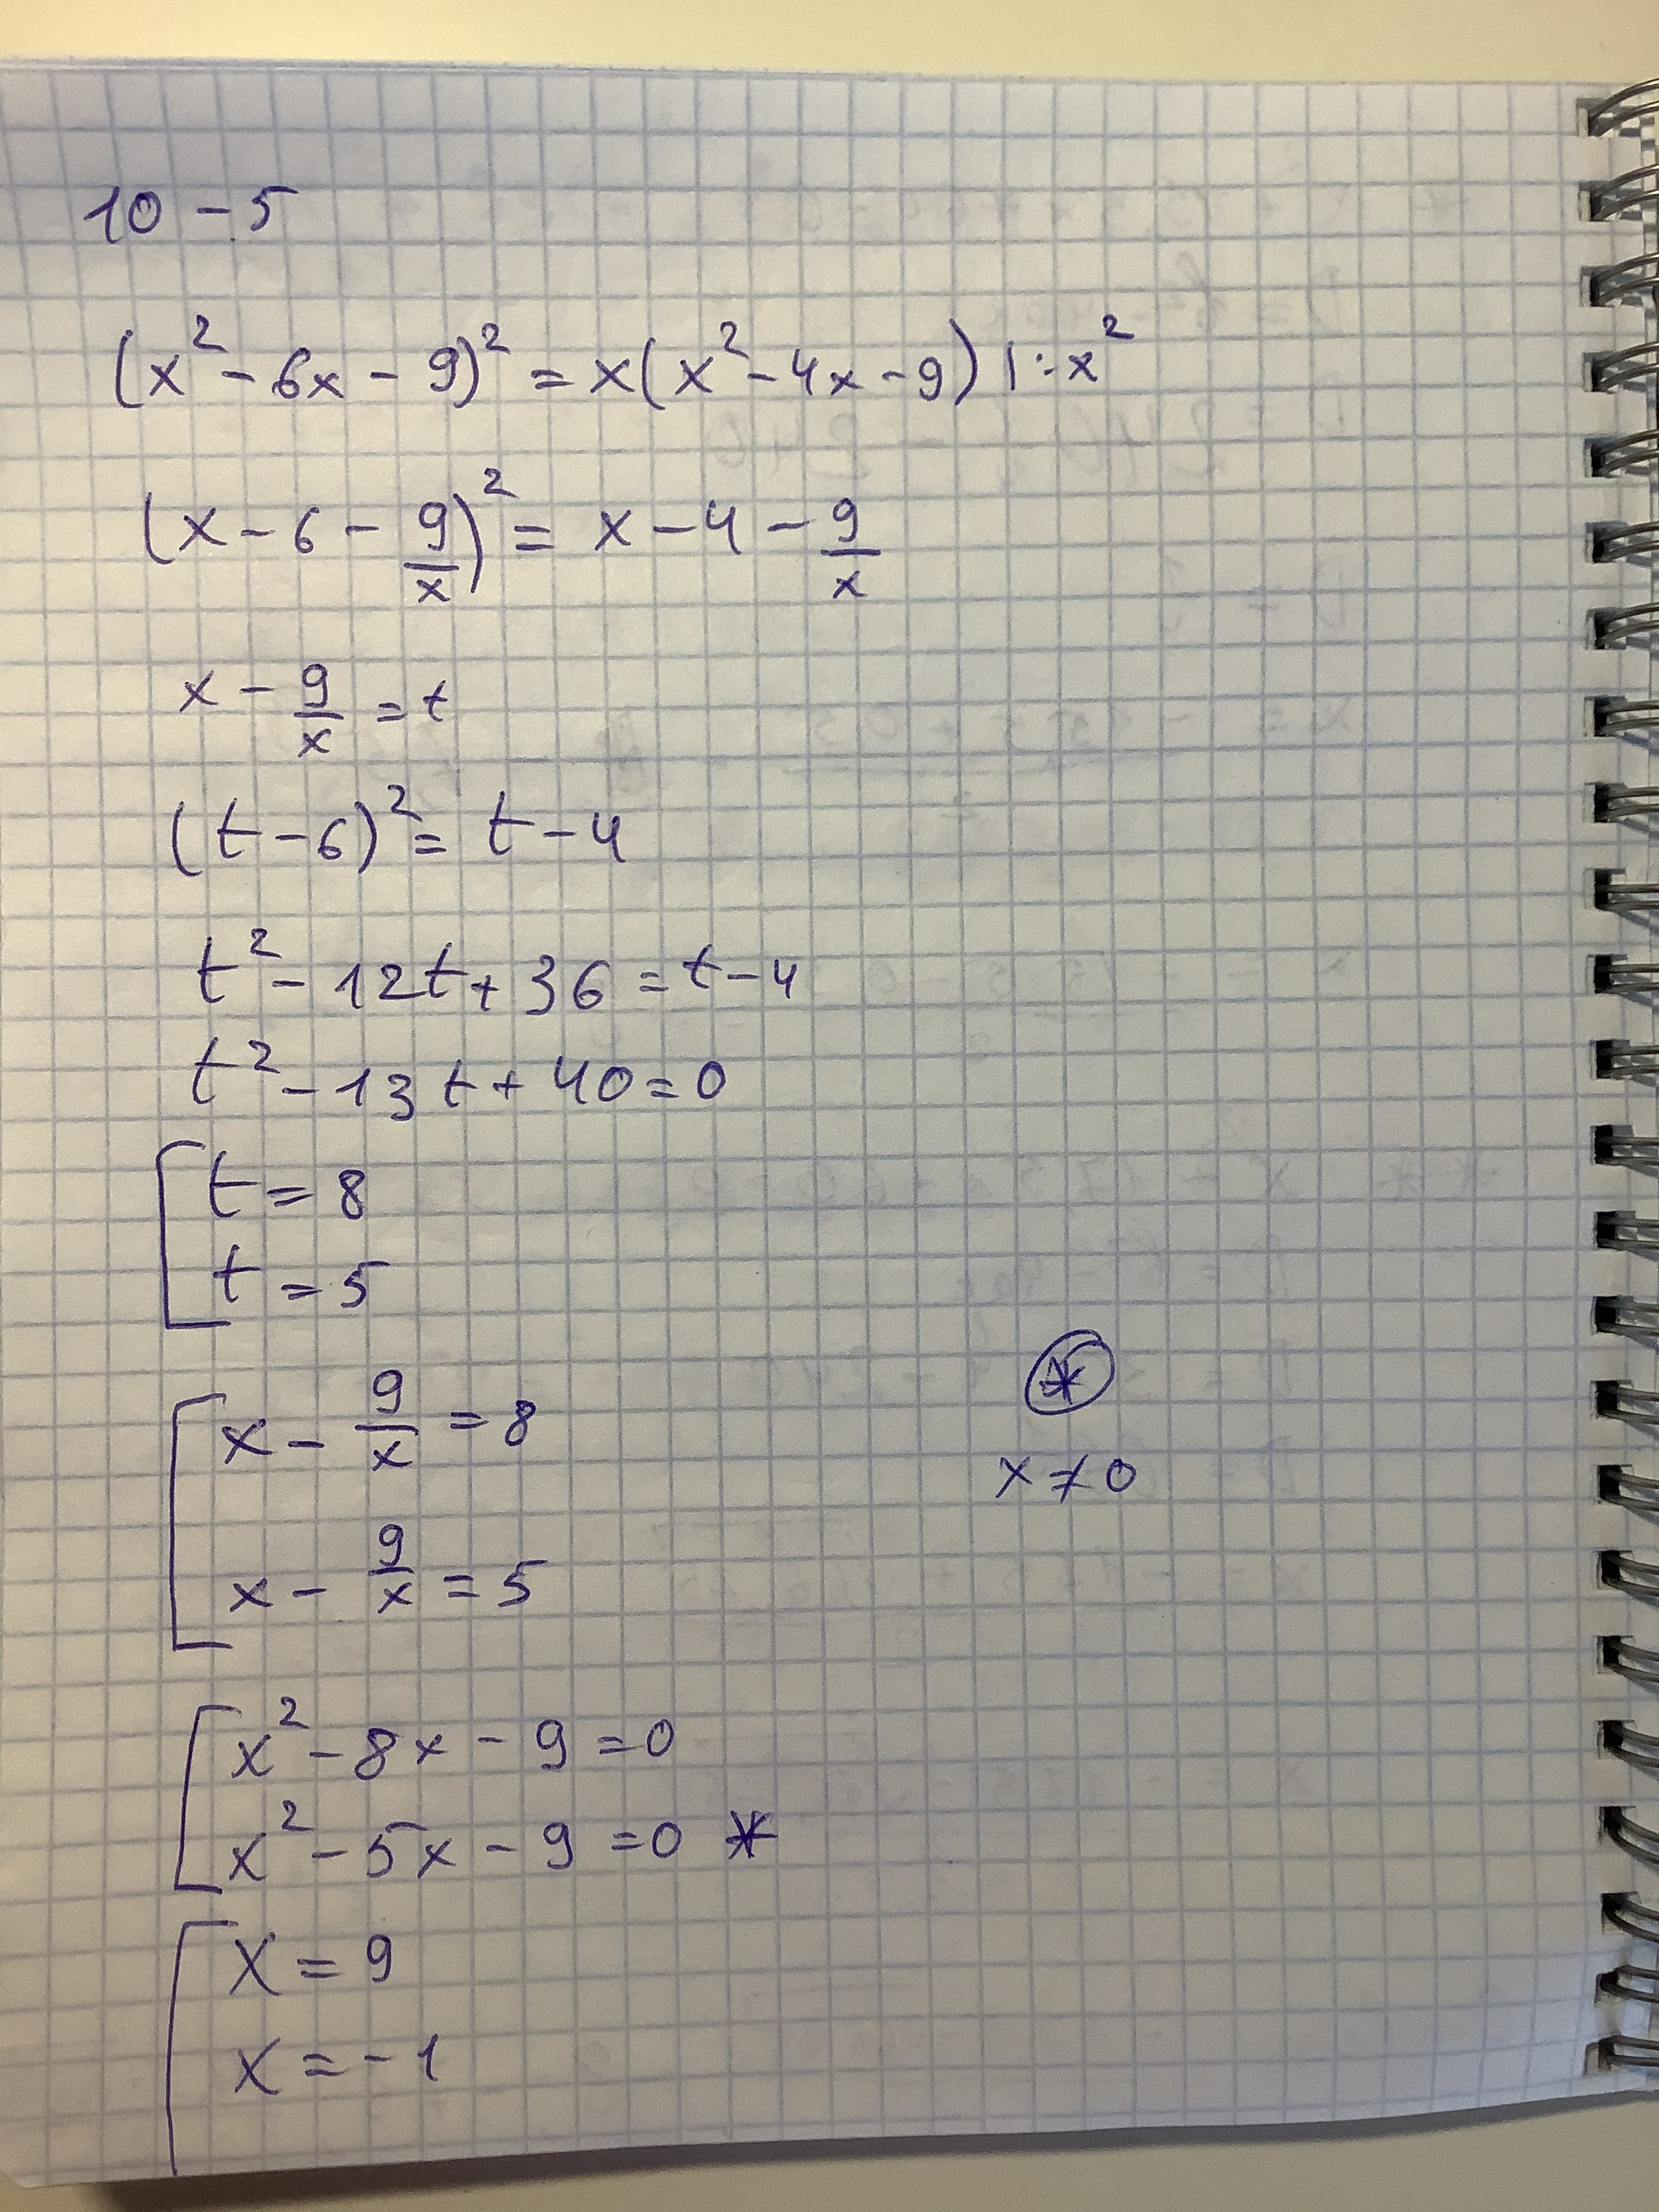 10 - 5
(x² - 6x - 9)² = x(x² - 4x - 9) | : x²
(x - 6 - 9/x)² = x - 4 - 9/x
x - 9/x = t
(t - 6)² = t - 4
t² - 12t + 36 = t - 4
t² - 13t + 40 = 0
[ t = 8
t = 5
[ x - 9/x = 8
x - 9/x = 5
⊛
x ≠ 0
[ x² - 8x - 9 = 0
x² - 5x - 9 = 0 *
[ x = 9
x = -1